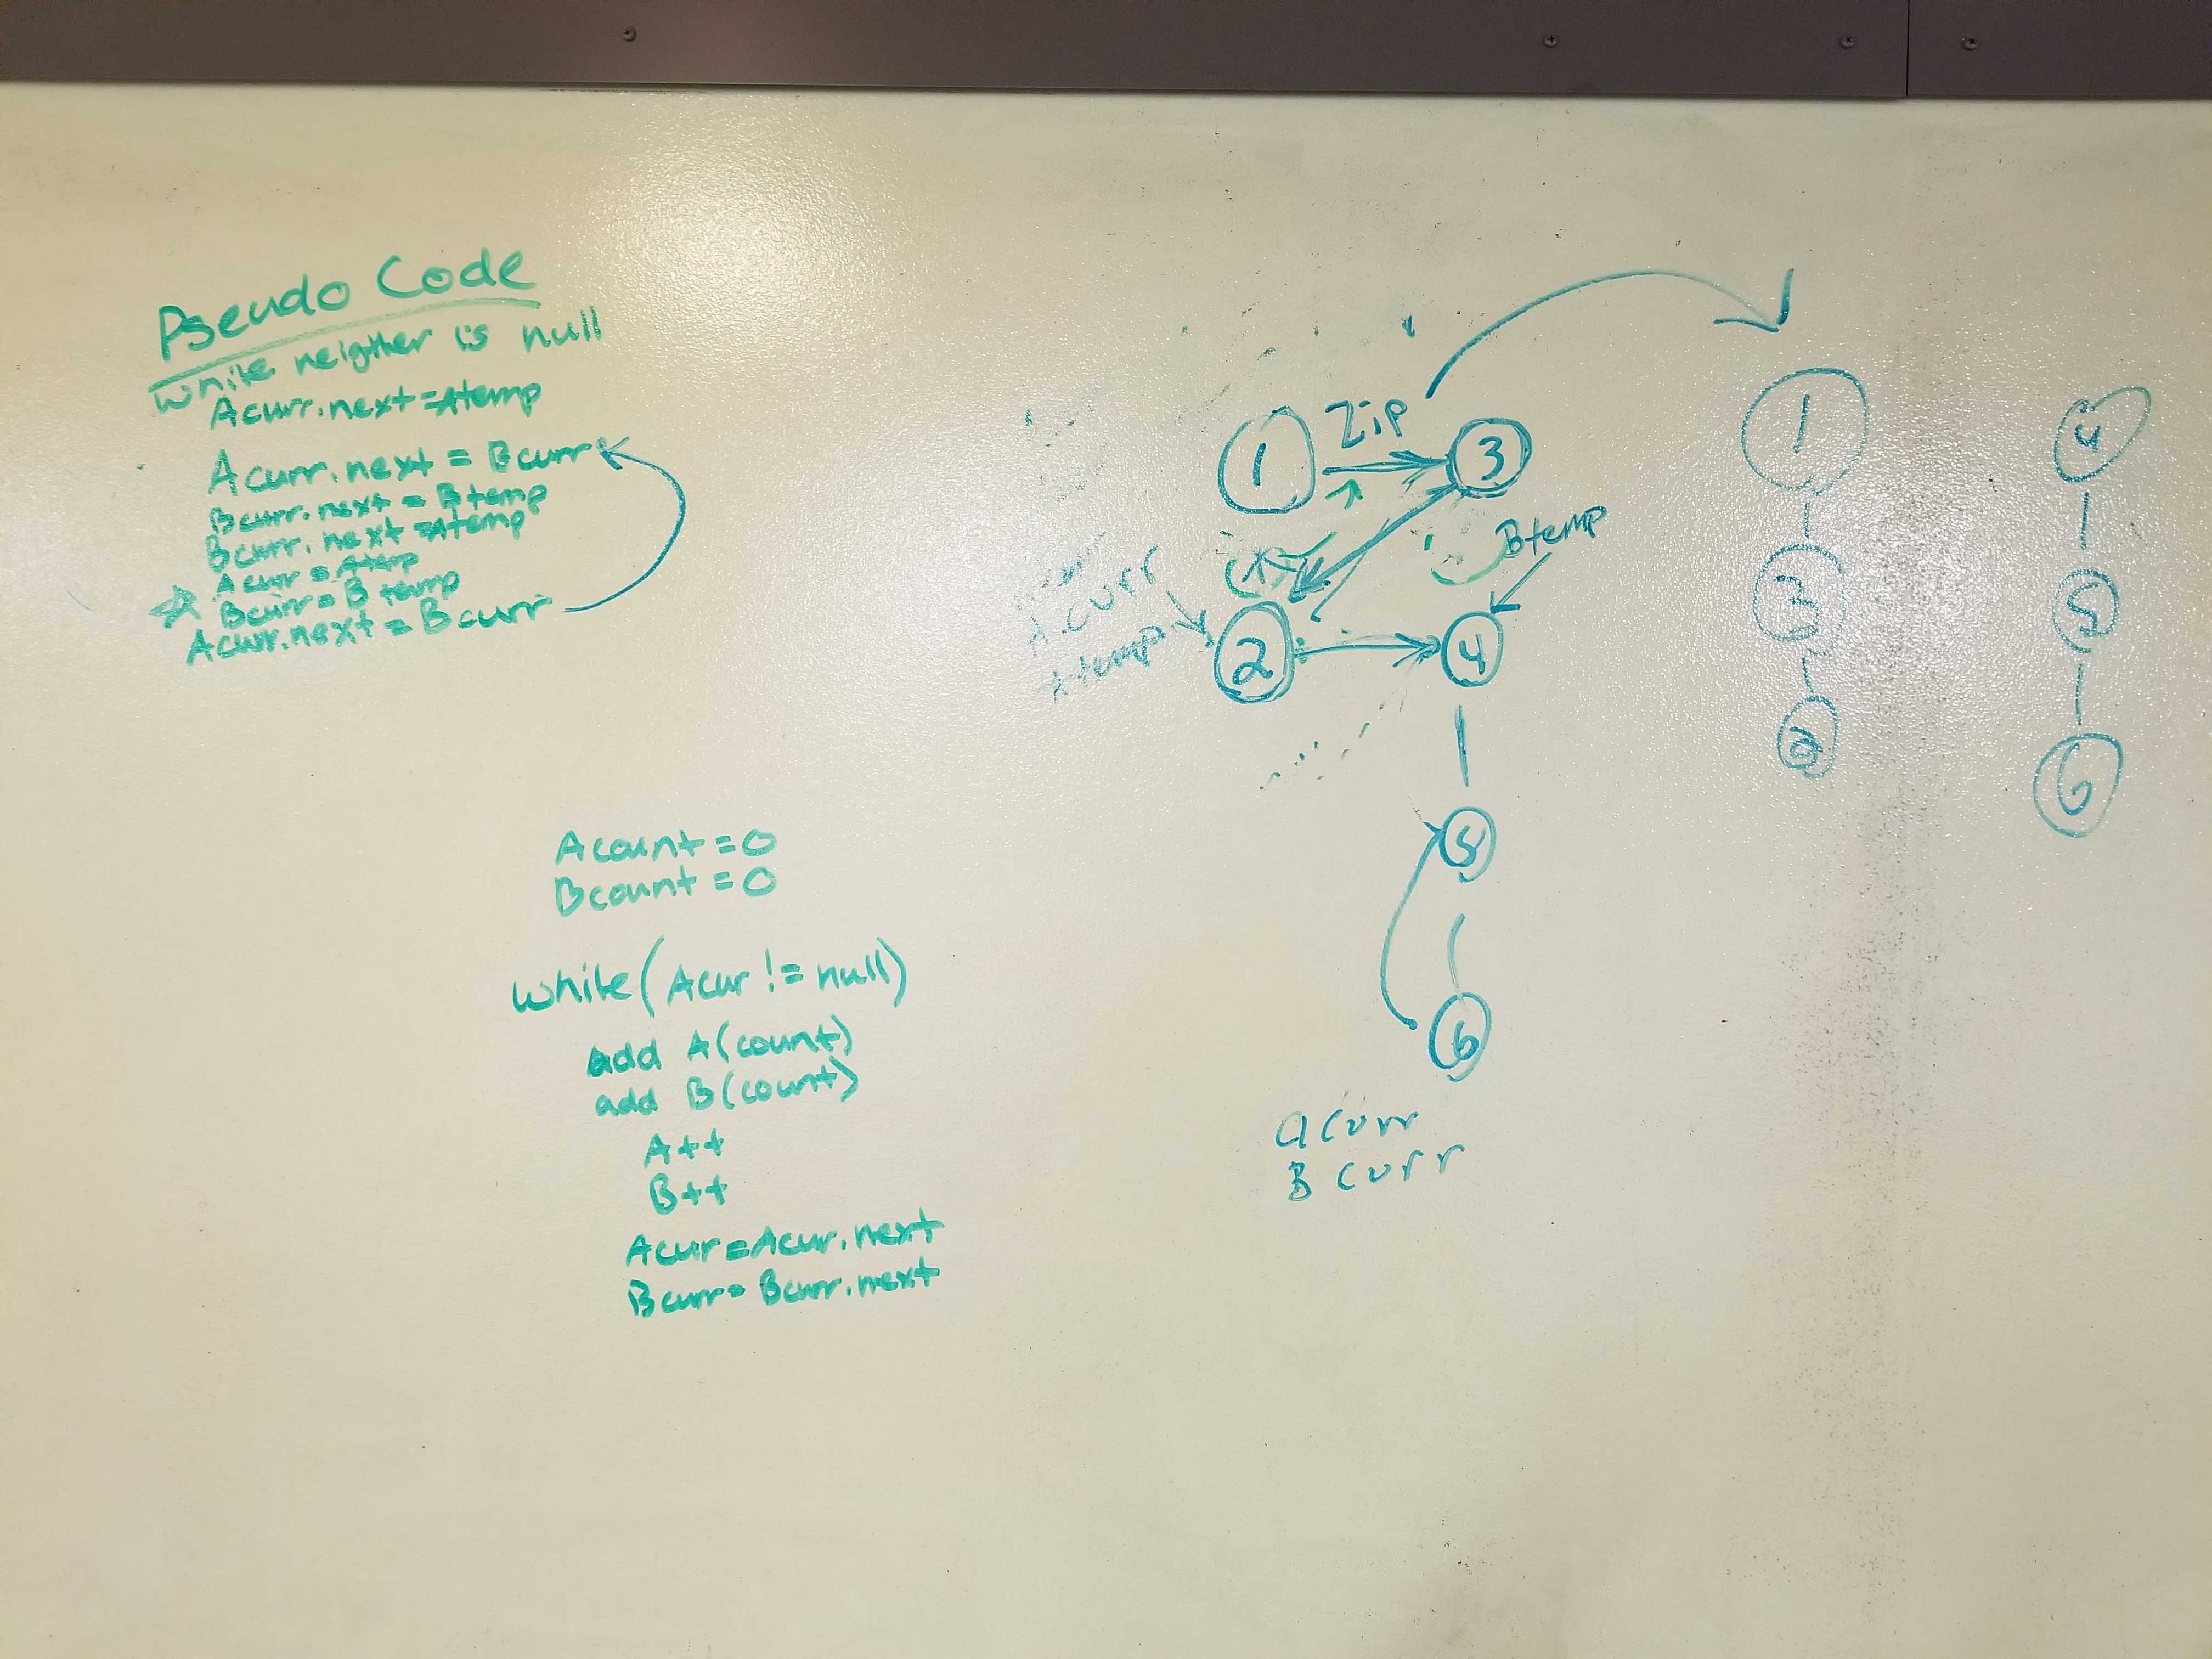 Pseudo Code
while neigther is null
Acurr.next=Atemp
Acurr.next = Bcurr
Bcurr.next = Btemp
Bcurr.next =Atemp
Acurr = Atemp
Bcurr= Btemp
Acurr.next = Bcurr
Acount=0
Bcount=0
while(Acur != null)
add A(count)
add B(count)
A++
B++
Acur=Acur.next
Bcurr= Bcurr.next
Zip
1
3
Btemp
A.curr
Atemp
2
4
5
6
acurr
Bcurr
1
3
2
4
5
6